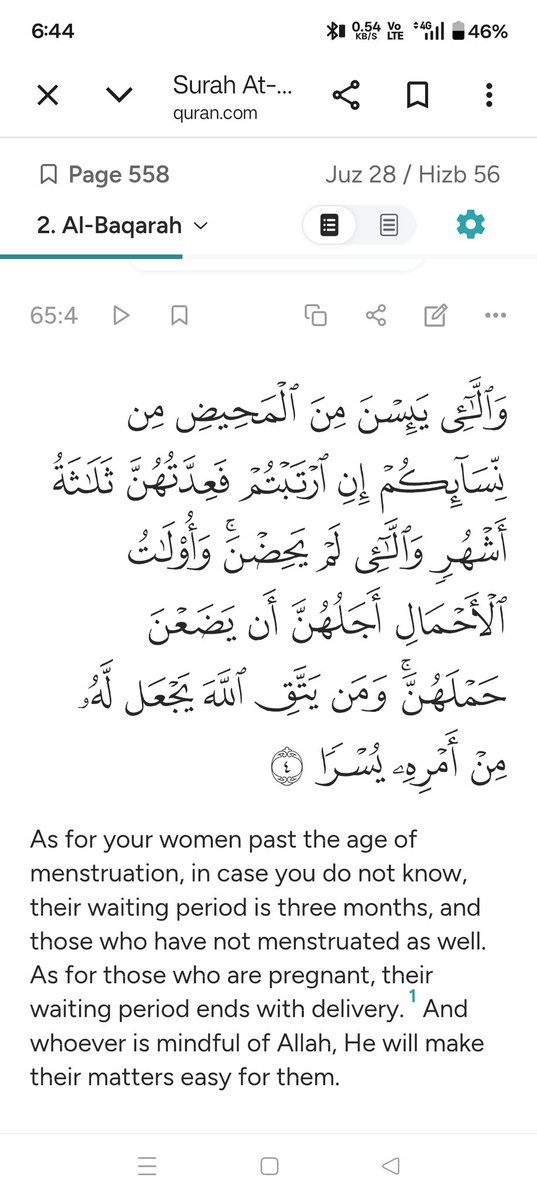 6:44
0.54 KB/S Vo LTE 4G 46%
Surah At-...
quran.com
Page 558 Juz 28 / Hizb 56
2. Al-Baqarah
65:4
وَٱلَّـٰٓـِٔى يَئِسْنَ مِنَ ٱلْمَحِيضِ مِن
نِّسَآئِكُمْ إِنِ ٱرْتَبْتُمْ فَعِدَّتُهُنَّ ثَلَـٰثَةُ
أَشْهُرٍ وَٱلَّـٰٓـِٔى لَمْ يَحِضْنَ ۚ وَأُو۟لَـٰتُ
ٱلْأَحْمَالِ أَجَلُهُنَّ أَن يَضَعْنَ
حَمْلَهُنَّ ۚ وَمَن يَتَّقِ ٱللَّهَ يَجْعَل لَّهُۥ
مِنْ أَمْرِهِۦ يُسْرًا ٤
As for your women past the age of
menstruation, in case you do not know,
their waiting period is three months, and
those who have not menstruated as well.
As for those who are pregnant, their
waiting period ends with delivery.1 And
whoever is mindful of Allah, He will make
their matters easy for them.